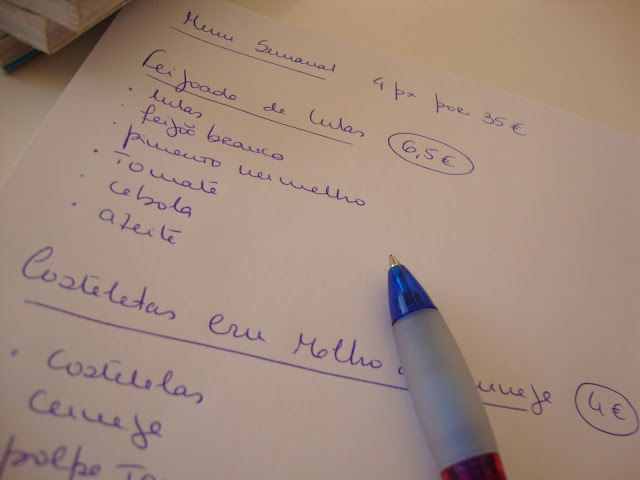 Menu Semanal 4 px por 35€
Feijoada de Lulas 6,5€
· lulas
· feijão branco
· pimento vermelho
· Tomate
· cebola
· azeite
Costeletas em Molho 4€
· costeletas
cerveja
polpa